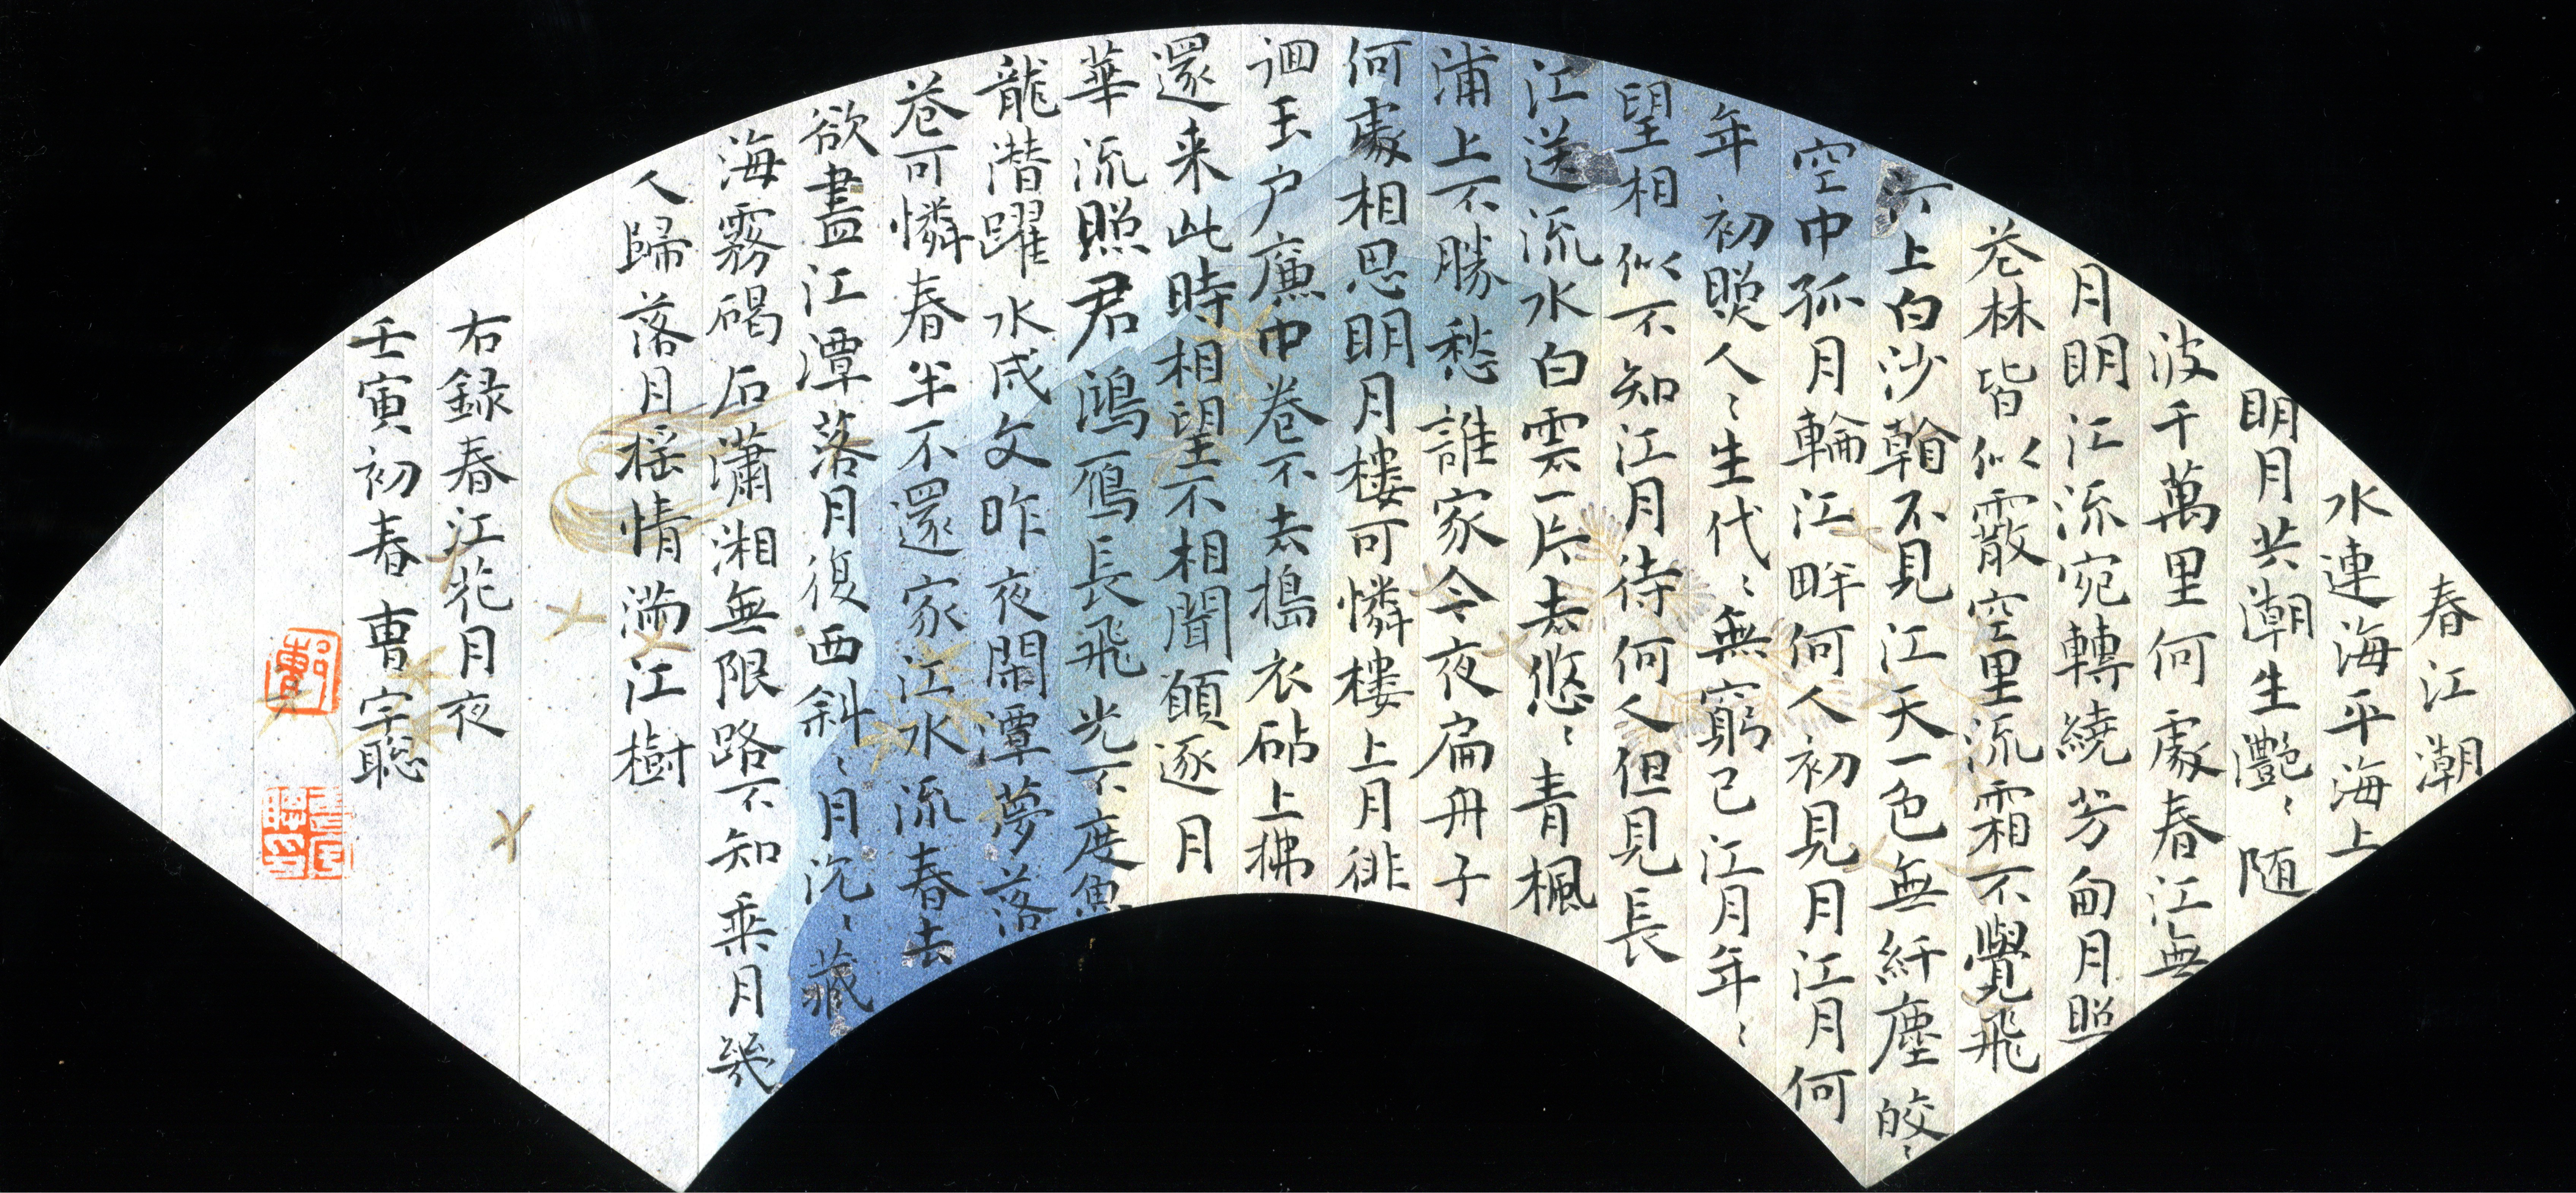 春江潮
水連海平海上
明月共潮生灧〻随
波千萬里何處春江無
月明江流宛轉繞芳甸月照
芲林皆似霰空里流霜不覺飛
汀上白沙看不見江天一色無纤塵皎〻
空中孤月輪江畔何人初見月江月何
年初照人〻生代〻無窮已江月年〻
望相似不知江月待何人但見長
江送流水白雲一片去悠〻青楓
浦上不勝愁誰家今夜扁舟子
何處相思明月樓可憐樓上月徘
徊玉户廉中卷不去搗衣砧上拂
還来此時相望不相聞願逐月
華流照君鴻雁長飛光不度魚
龍潛躍水成文昨夜閑潭夢落
芲可憐春半不還家江水流春去
欲盡江潭落月復西斜〻月沉〻藏
海霧碣石瀟湘無限路不知乘月幾
人歸落月摇情满江樹
右録春江花月夜
壬寅初春曹宗聰